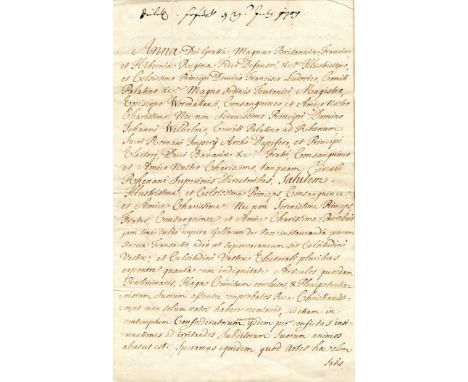 Anna Dei Gratiâ Magnae Britanniae, Franciae
et Hiberniae Regina Fidei Defensor, &c. Illustrissimo,
et Celsissimo Principi Domino Francisco Ludovico, Comiti
Palatino &c. Magno Ordinis Teutonici Magistro,
Episcopo Wormatiensi, Consanguineo et Amico Nostro
Charissimo; Nec non Serenissimo Principi Domino
Johanni Wilhelmo, Comiti Palatino ad Rhenum
Sacri Romani Imperij Archi Dapifero, et Principi
Electori, Duci Bavariae &c. Fratri, Consanguineo
et Amico Nostro Charissimo tanquam Circuli
Rhenani Superioris Directoribus, Salutem.
Illustrissime, et Celsissime Princeps Consanguinee
et Amice Charissime; Nec non Serenissime Princeps,
Frater, Consanguinee et Amice Charissime.
jam tractatio nupera Gallorum de Pace instauranda
Transacto, adeò ut supervacaneum sit Celsitudini
Vestrae et Celsitudini Vestrae Electorali pluribus
exponere quanta cum indignitate Articulos quosdam
Praeliminares, Hagae Comitum conclusos, &
suorum comprobatos Rex Christianissi-
mus non solum ratos habere recusarit, sed etiam in
contemptum Confoederatorum ijsdem per
ad irritandos Subditorum Suorum animos
abusus est. Speramus equidem quòd artes
Satis